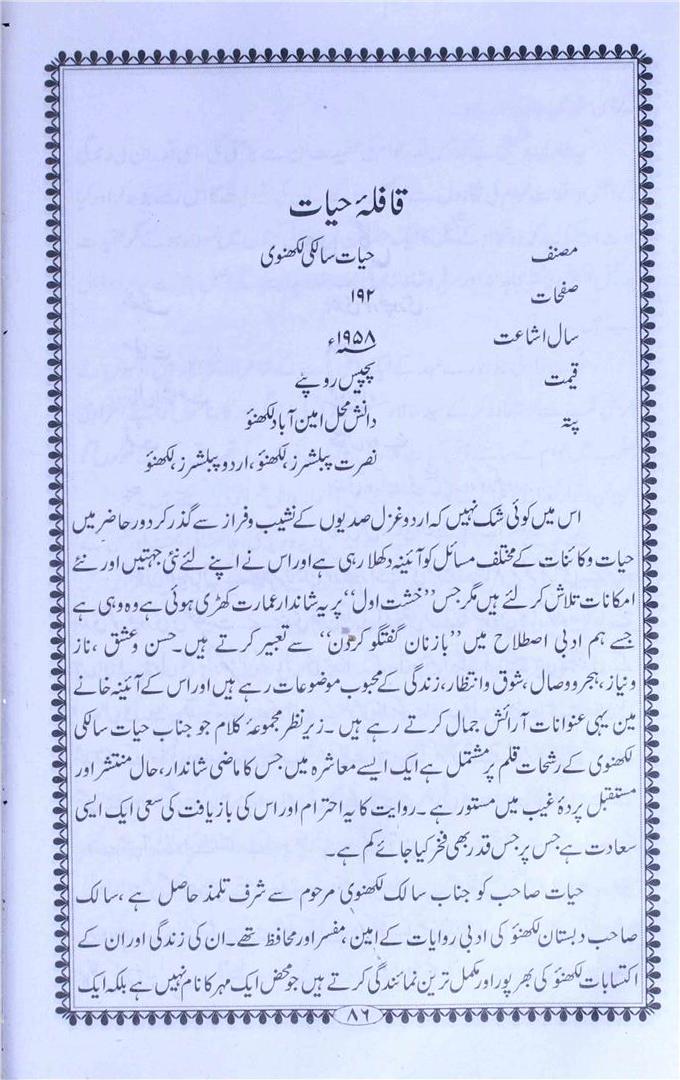 قافلۂ حیات
مصنف حیات سالکی لکھنوی
صفحات ۱۹۲
سال اشاعت ۱۹۵۸ء
قیمت پچیس روپئے
پتہ دانش محل امین آباد لکھنؤ
نصرت پبلشرز، لکھنؤ، اردو پبلشرز، لکھنؤ
اس میں کوئی شک نہیں کہ اردو غزل صدیوں کے نشیب و فراز سے گذر کر دور حاضر میں
حیات و کائنات کے مختلف مسائل کو آئینہ دکھلا رہی ہے اور اس نے اپنے لئے نئی جہتیں اور نئے
امکانات تلاش کر لئے ہیں مگر جس ”خشت اول“ پر یہ شاندار عمارت کھڑی ہوئی ہے وہ وہی ہے
جسے ہم ادبی اصطلاح میں ”بازنان گفتگو کردن“ سے تعبیر کرتے ہیں۔ حسن و عشق، ناز
و نیاز، ہجر و وصال، شوق و انتظار، زندگی کے محبوب موضوعات رہے ہیں اور اس کے آئینہ خانے
مین یہی عنوانات آرائش جمال کرتے رہے ہیں۔ زیر نظر مجموعۂ کلام جو جناب حیات سالکی
لکھنوی کے رشحات قلم پر مشتمل ہے ایک ایسے معاشرہ میں جس کا ماضی شاندار، حال منتشر اور
مستقبل پردۂ غیب میں مستور ہے۔ روایت کا یہ احترام اور اس کی بازیافت کی سعی ایک ایسی
سعادت ہے جس پر جس قدر بھی فخر کیا جائے کم ہے۔
حیات صاحب کو جناب سالک لکھنوی مرحوم سے شرف تلمذ حاصل ہے، سالک
صاحب دبستان لکھنؤ کی ادبی روایات کے امین، مفسر اور محافظ تھے۔ ان کی زندگی اور ان کے
اکتسابات لکھنؤ کی بھرپور اور مکمل ترین نمائندگی کرتے ہیں جو محض ایک مہر کا نام نہیں ہے بلکہ ایک
۸۶